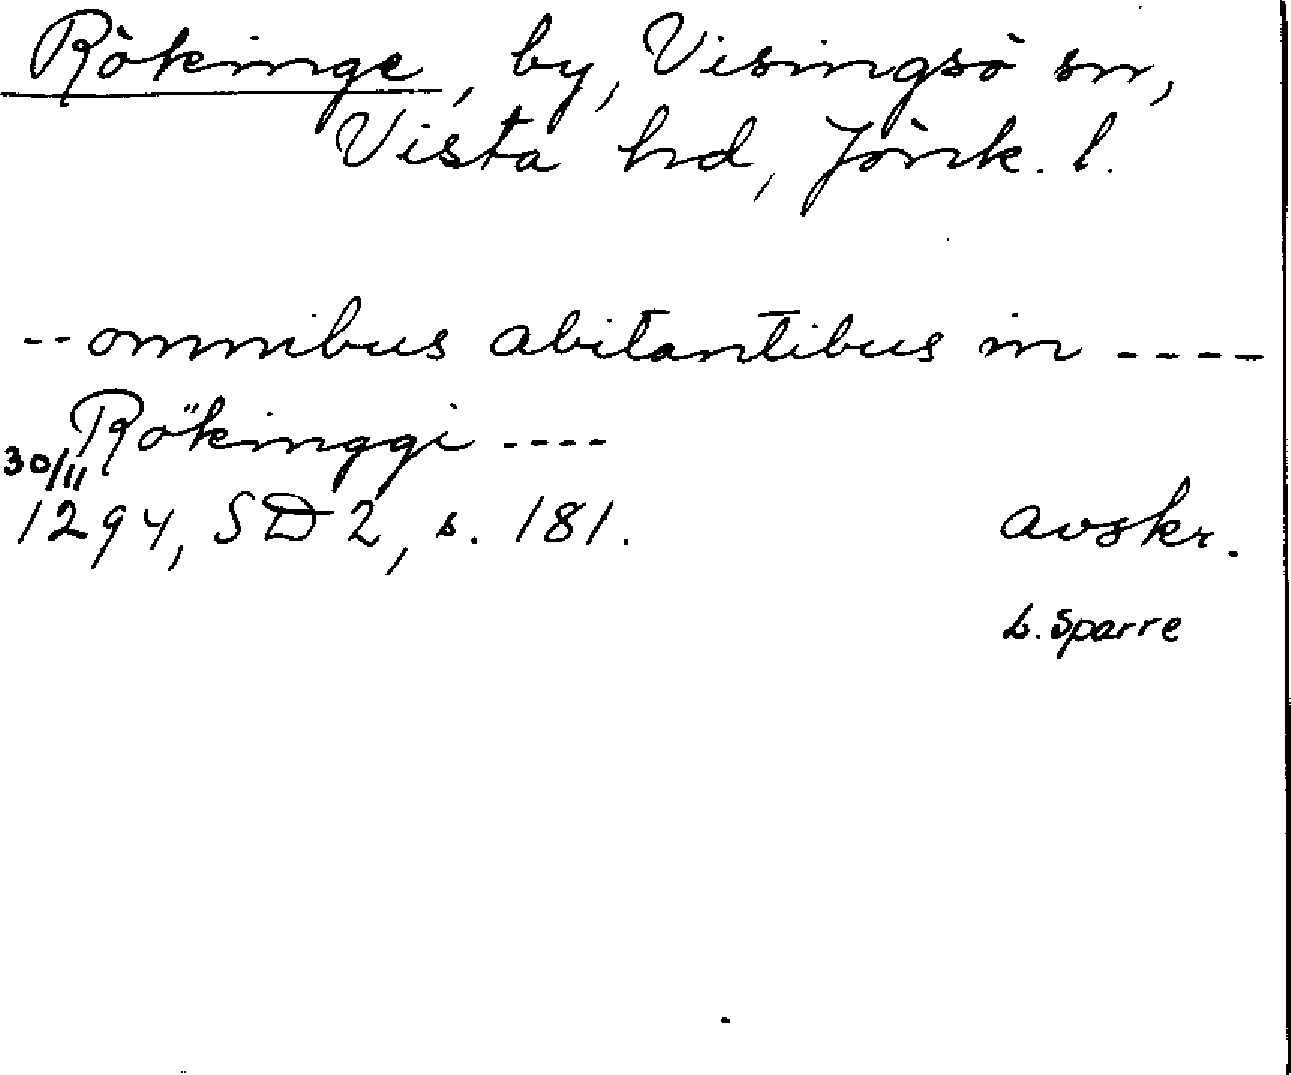 Rökinge, by, Visingsö sn,
Vista hd, Jönk. l.
--omnibus abitantibus in ----
Rökinggi ----
30/11
1294, SD 2, s. 181. avskr.
L. Sparre